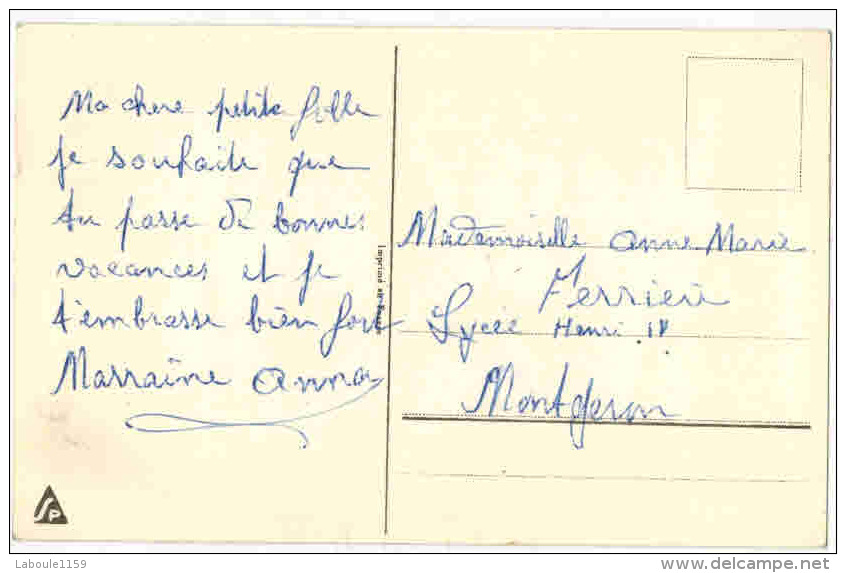 Ma chere petite fille
je souhaite que
tu passe de bonnes
vacances et je
t'embrasse bien fort
Marraine Anna
Imprimé en
Mademoiselle Anne Marie
Ferrieu
Lycée Henri IV
Montgeron
SP
Laboule1159
delcampe.net